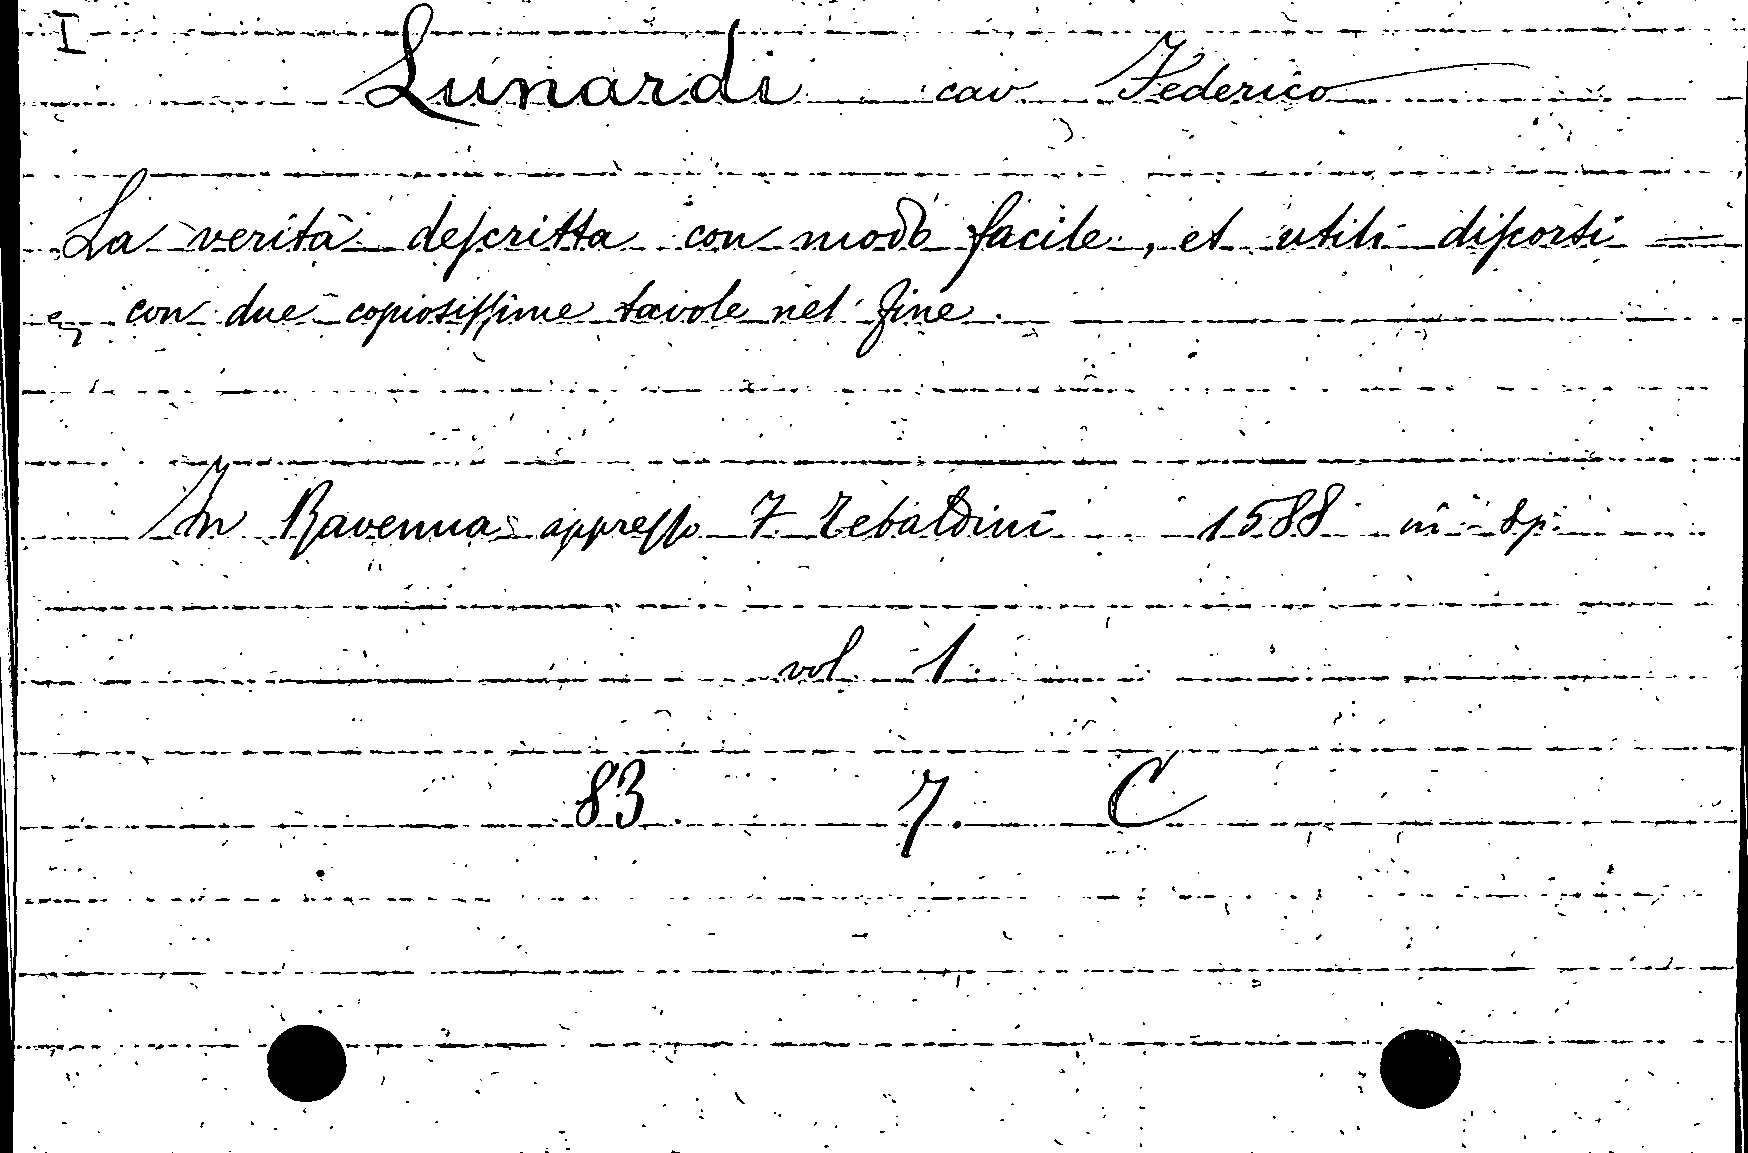 I
Lunardi cav Federico
La verità deſcritta con modo facile, et utili diſcorsi
con due copiosiſſime tavole nel fine.
In Ravenna appreſſo F. Tebaldini 1588 in 8p:
vol 1.
83. 7. C